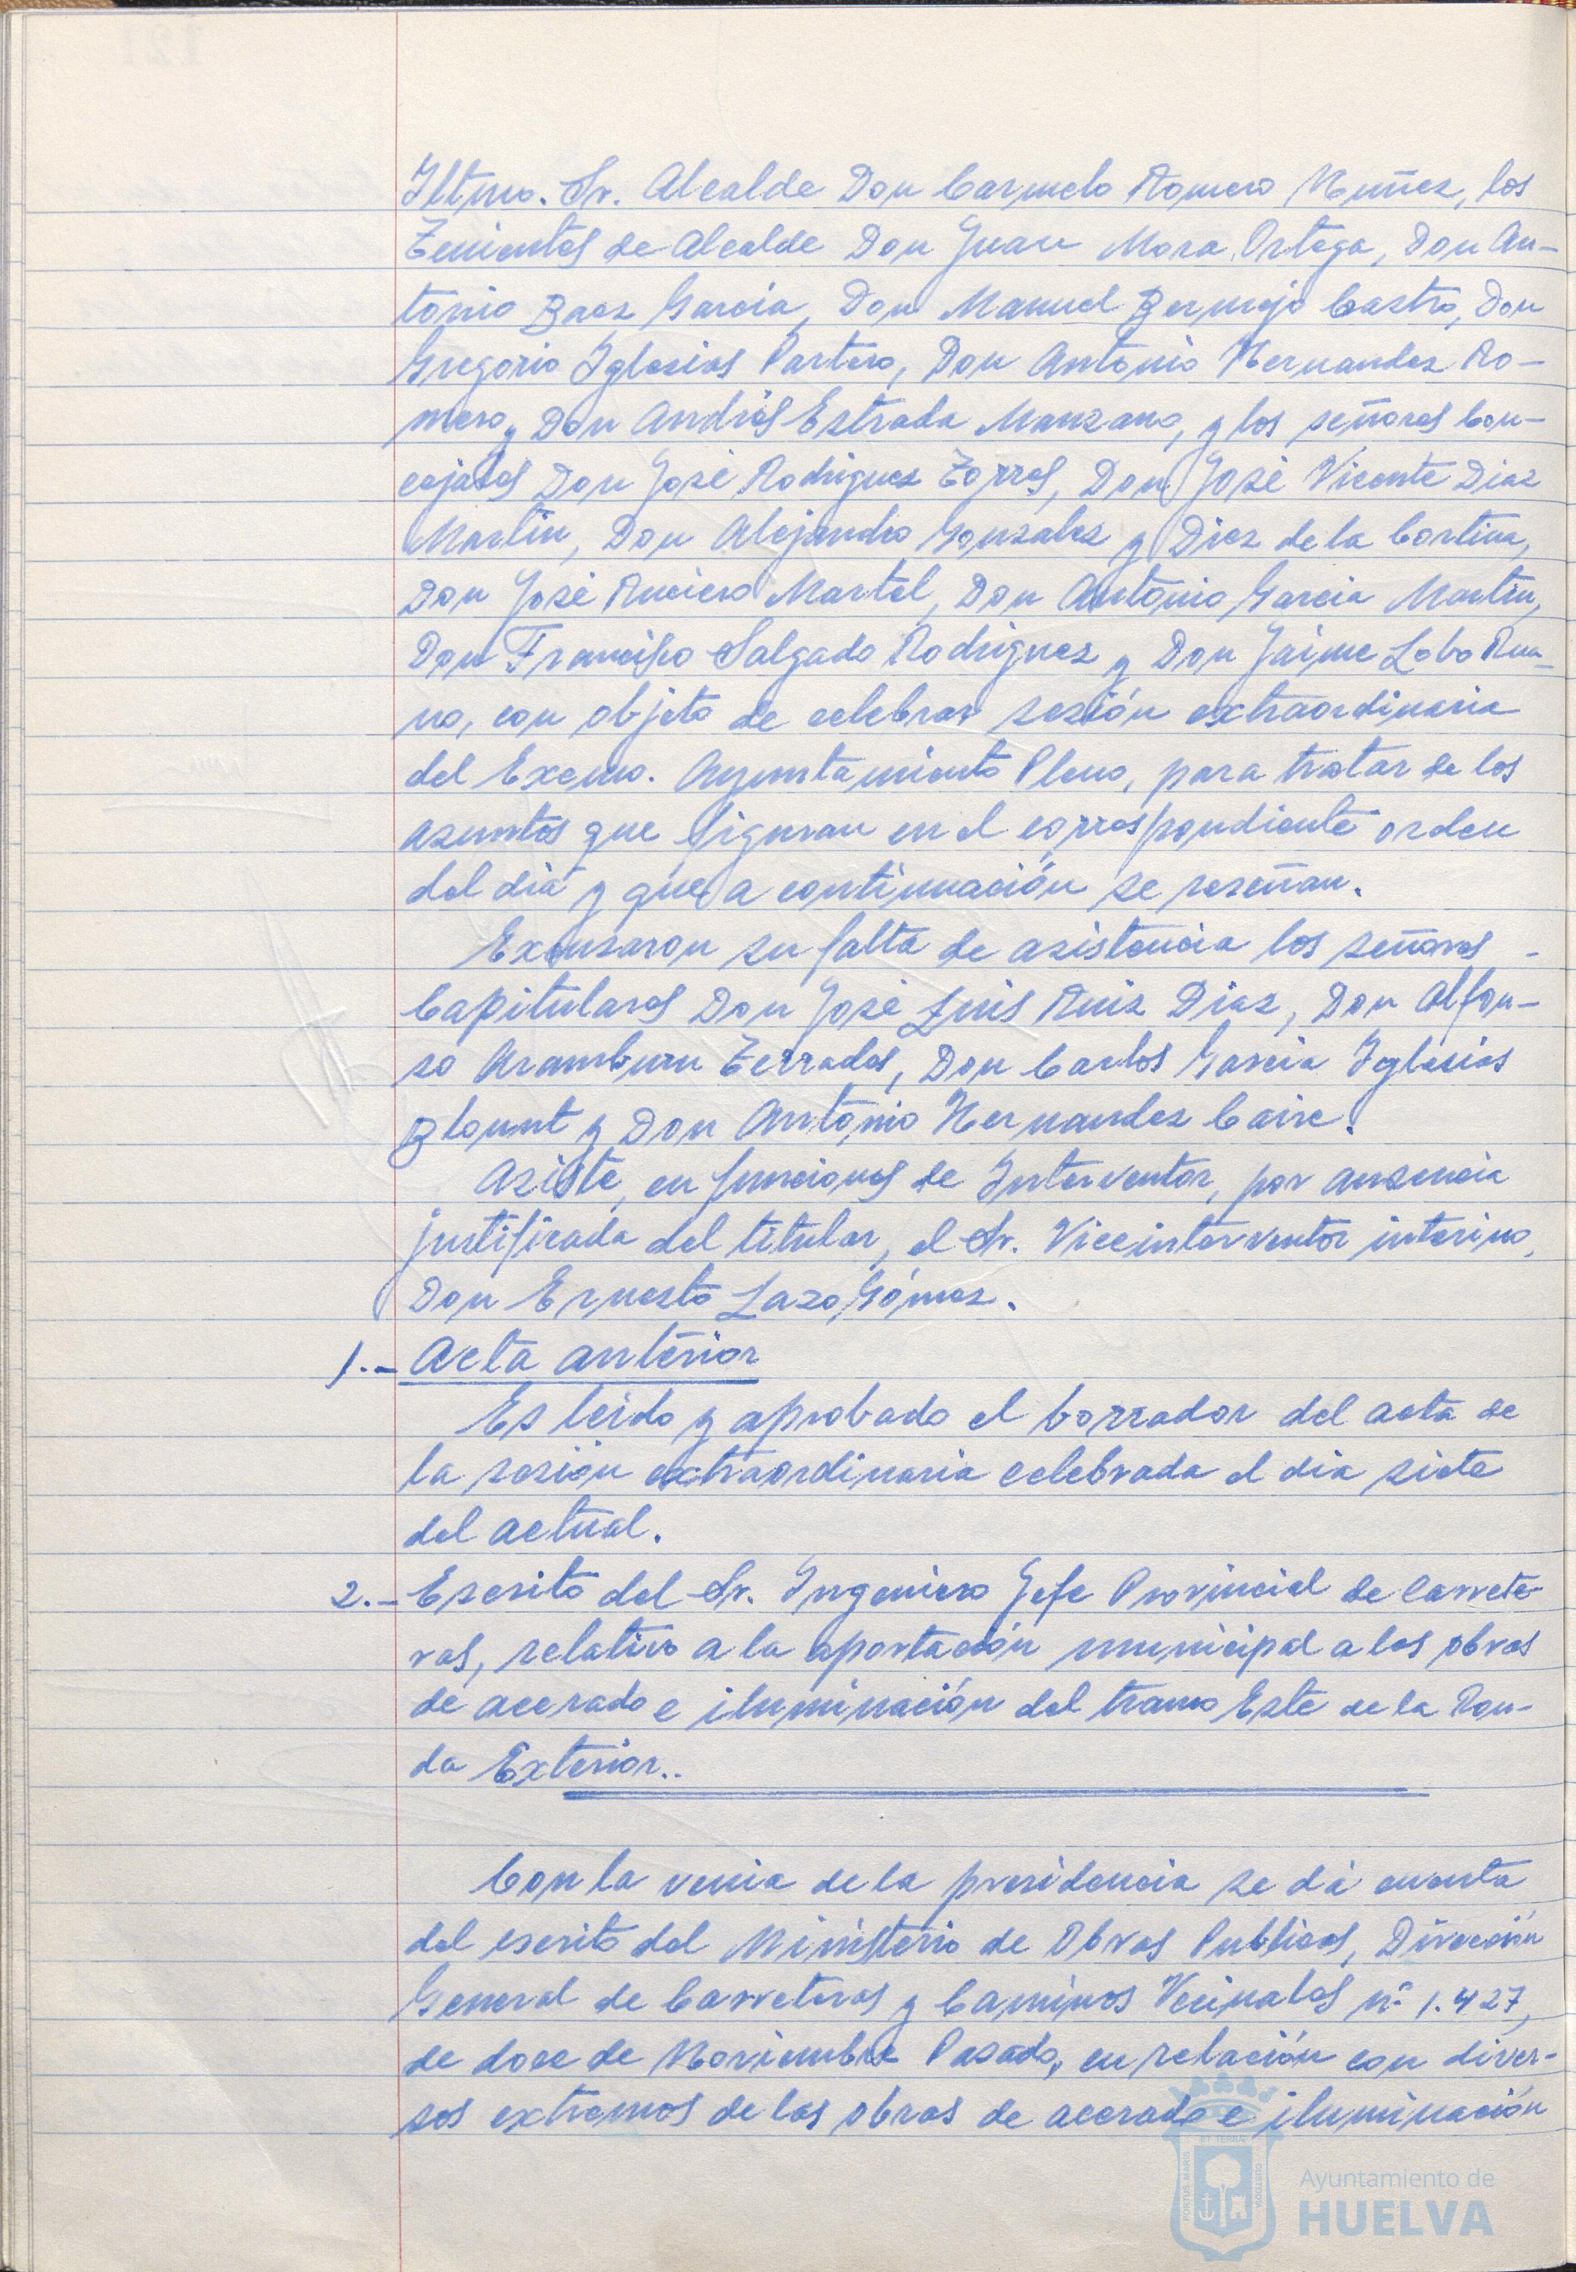 Iltmo. Sr. Alcalde Don Carmelo Romero Nuñez, los
Tenientes de Alcalde Don Juan Mora Ortega, Don An-
tonio Baez Garcia, Don Manuel Bermejo Castro, Don
Gregorio Iglesias Partero, Don Antonio Hernandez Ro-
mero, Don Andrés Estrada Manzano, y los señores Con-
cejales Don José Rodriguez Torres, Don José Vicente Diaz
Martin, Don Alejandro Gonzalez y Diez de la Cortina,
Don José Ruciero Martel, Don Antonio Garcia Martin,
Don Francisco Salgado Rodriguez y Don Jaime Lobo Rua-
no, con objeto de celebrar sesión extraordinaria
del Excmo. Ayuntamiento Pleno, para tratar de los
asuntos que figuran en el correspondiente orden
del dia y que a continuación se reseñan.
Excusaron su falta de asistencia los señores
Capitulares Don José Luis Ruiz Diaz, Don Alfon-
so Aramburu Terrades, Don Carlos Garcia Iglesias
Blount y Don Antonio Hernandez Caire.
Asiste, en funciones de Interventor, por ausencia
justificada del titular, el Sr. Viceinterventor interino,
Don Ernesto Lazo Gómez.
1.- Acta anterior
Es leido y aprobado el borrador del acta de
la sesión extraordinaria celebrada el dia siete
del actual.
2.- Escrito del Sr. Ingeniero Jefe Provincial de Carrete-
ras, relativo a la aportación municipal a las obras
de acerado e iluminación del tramo Este de la Ron-
da Exterior..
Con la venia de la presidencia se dá cuenta
del escrito del Ministerio de Obras Publicas, Dirección
General de Carreteras y Caminos Vecinales nº 1.427,
de doce de Noviembre Pasado, en relación con diver-
sos extremos de las obras de acerado e iluminación
PORTUS MARIS ET TERRAE CUSTODIA
Ayuntamiento de
HUELVA